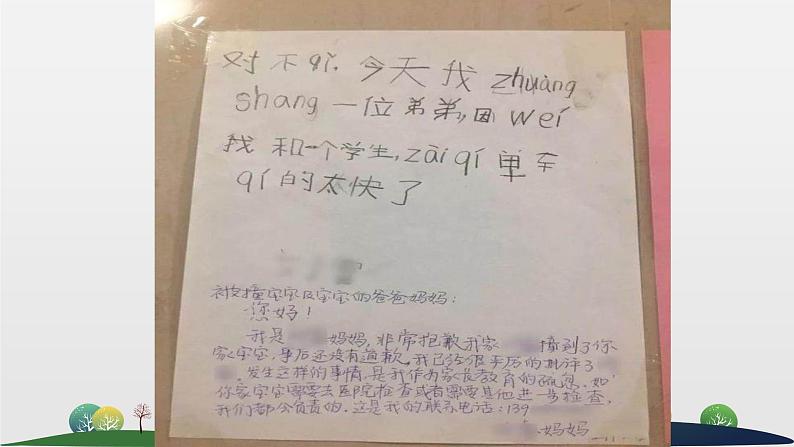 对不qǐ. 今天我 zhuàng
shang 一位弟弟,因wéi
我 和一个学生,zài qí 单车
qí 的太快了
被撞宝宝及宝宝的爸爸妈妈:
您好!
我是 妈妈,非常抱歉我家 撞到了你
家宝宝,事后还没有道歉,我已经很严厉的批评了
。发生这样的事情,是我作为家长教育的疏忽.如
你家宝宝需要去医院检查或者需要其他进一步检查,
我们都会负责的.这是我的联系电话:139
妈妈